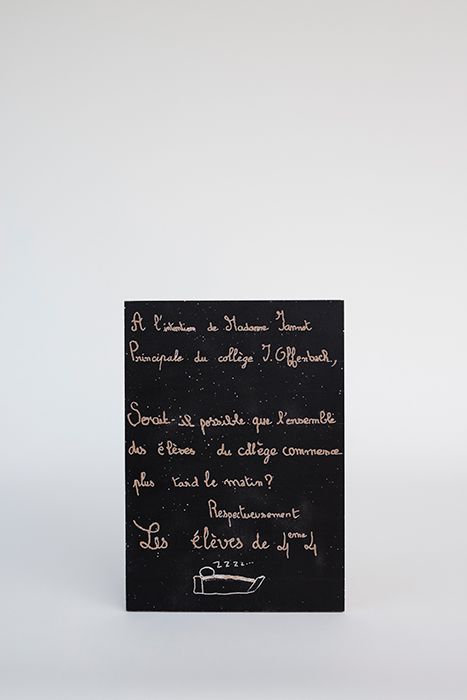 A l'intention de Madame Jannot
Principale du collège J. Offenbach,
Serait-il possible que l'ensemble
des élèves du collège commence
plus tard le matin?
Respectueusement
Les élèves de 4eme 4
zzzz...